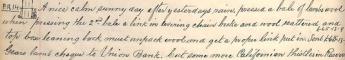 A nice calm sunny day after yesterdays rain, pressed a bale of lambswool
when pressing the 2nd bale a link in turning chain broke and wool pattered, and
top box leaning back must unpack wood and get a proper link put in. Sent £66-13-
Gears lambs cheque to Union Bank. Cut some more Californian Thistle in Reserve